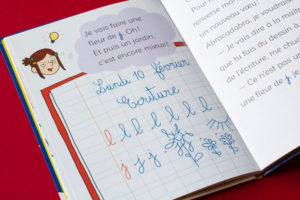 Je vais faire une
fleur de j. Oh!
Et puis un jardin,
c'est encore mieux!
Lundi 10 février
Ecriture
l l l l l l l
j j j
renverse mon
un nouveau
Abracadabra, je voudrais
— Je vais dire à la maît
que tu fais du dessin
de l'écriture, me chu
— Ce n'est pas un
une fleur de j.